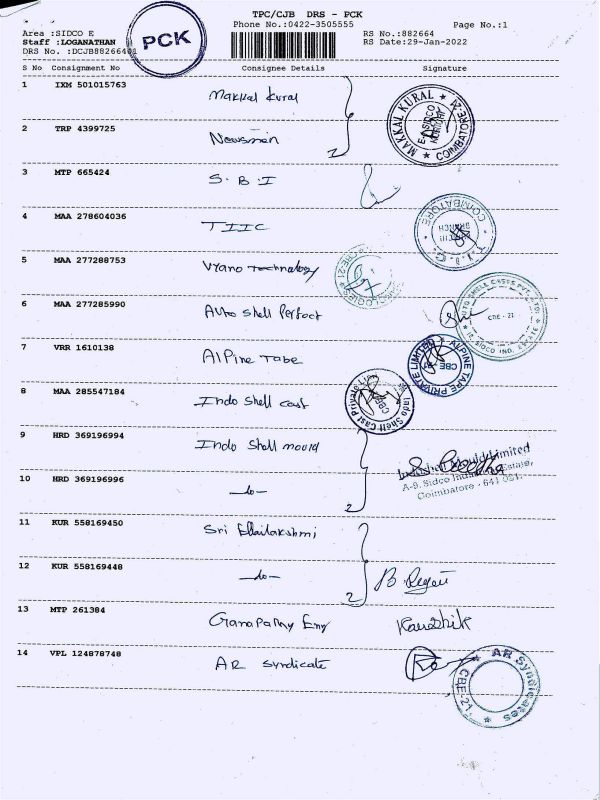 TPC/CJB DRS - PCK
Phone No.:0422-3505555
Page No.:1
Area :SIDCO E
Staff :LOGANATHAN
DRS No. :DCJB88266401
PCK
RS No.:882664
RS Date:29-Jan-2022
S No Consignment No Consignee Details Signature
1 IXM 501015763 Makkal Kural
MAKKAL KURAL ★ COIMBATORE-21 ★
2 TRP 4399725 Newsmen
2
3 MTP 665424 S.B.I
4 MAA 278604036 TIIC
COIMBATORE
BRANCH
T.I.I.C.
5 MAA 277288753 Vyano technology
CBE-21
6 MAA 277285990 Auto shell Perfect
SHELL CASTS PVT. LTD.
CBE - 21
SIDCO IND. ESTATE
7 VRR 1610138 Alpine Tape
ALPINE TAPE PRIVATE LIMITED
CBE-21
8 MAA 285547184 Indo shell cast
Indo Shell Cast Private
CBE
9 HRD 369196994 Indo Shell mould
Limited
A-9, Sidco Industrial Estate,
Coimbatore - 641 021.
10 HRD 369196996 -do-
2
11 KUR 558169450 Sri Ellailakshmi
12 KUR 558169448 -do-
2
13 MTP 261384 Ganapathy Eng Kaushik
14 VPL 124878748 AR Syndicate
★ AR Syndicates ★ CBE-21.